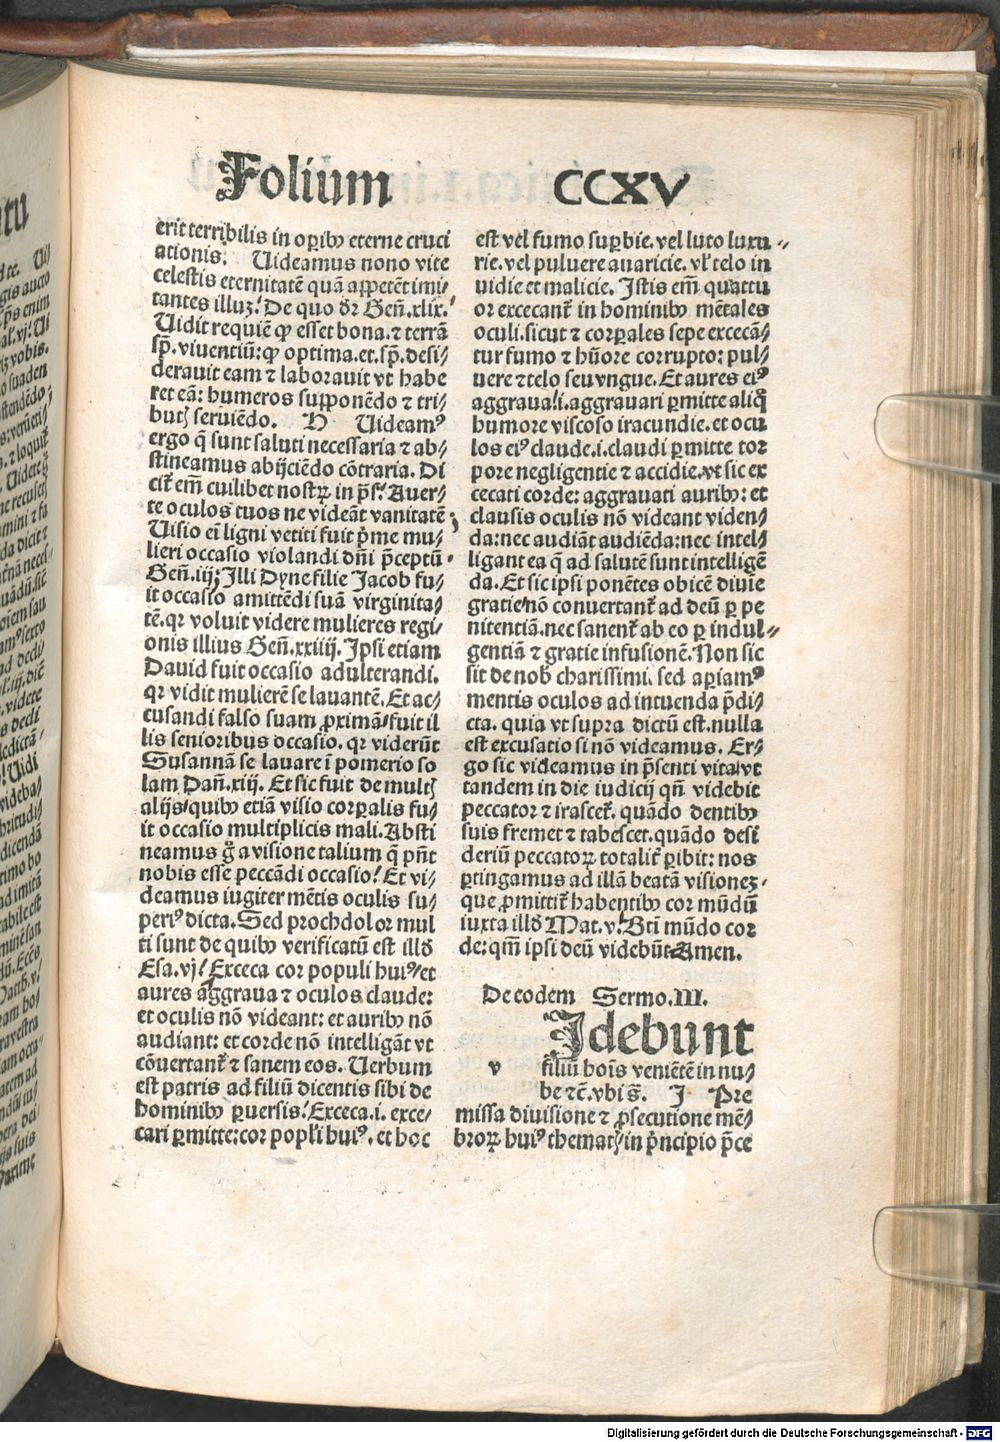 Folium CCXV
erit terribilis in oꝑibꝰ eterne cruci
ationis. Uideamus nono vite
celestis eternitatē quā appetēt imi/
tantes illuꝫ/ De quo dr̄ Geñ.xlix.
Uidit requiē ꝙ esset bona.⁊ terrā
sp̄.viventiū:ꝙ optima.et.sp̄.desi/
deravit eam ⁊ laboravit vt habe
ret eā: humeros supponēdo ⁊ tri/
butꝭ serviēdo. H Uideamꝰ
ergo q̄ sunt saluti necessaria ⁊ ab/
stineamus abijciēdo cōtraria. Di
cit̄ em̄ cuilibet nostrꝝ in p̄s/ Auer/
te oculos tuos ne videāt vanitatē
Uisio ei ligni vetiti fuit p̄me mu/
lieri occasio violandi dn̄i p̄ceptū.
Geñ.iij; Illi Dyne filie Jacob fu/
it occasio amittēdi suā virginita/
tē.qr voluit videre mulieres regi/
onis illius Geñ.xxiiij. Ipsi etiam
Dauid fuit occasio adulterandi.
qr vidit mulierē se lauantē. Et ac/
cusandi falso suam ꝓximā/fuit il
lis senioribus occasio. qr viderūt
Susannā se lauare ī pomerio so
lam Dañ.xiij. Et sic fuit de multꝭ
alijs/quibꝰ etiā visio corꝑalis fu/
it occasio multiplicis mali. Absti
neamus g̊ a visione talium q̄ pn̄t
nobis esse peccādi occasio/ Et vi/
deamus iugiter mētis oculis su/
periꝰ dicta. Sed prochdolor mul
ti sunt de quibꝰ verificatū est illđ
Esa.vj/ Exceca cor populi huiꝰ/et
aures aggraua ⁊ oculos claude:
et oculis nō videant: et auribꝰ nō
audiant: et corde nō intelligāt vt
cōuertant̄ ⁊ sanem eos. Uerbum
est patris ad filiū dicentis sibi de
hominibꝰ ꝑuersis/ Exceca.i. exce/
cari ꝑmitte:cor popľi huiꝰ. et hoc
est vel fumo suꝑbie.vel luto luxu/
rie.vel puluere auaricie.vľ telo in
uidie et malicie. Istis em̄ quattu
or excecant̄ in hominibꝰ mētales
oculi.sicut ⁊ corꝑales sepe excecā/
tur fumo ⁊ hūore corrupto: pul/
uere ⁊ telo seu vngue. Et aures eiꝰ
aggraua/.i.aggrauari ꝑmitte aliq̊
humore viscoso iracundie.et ocu
los eiꝰ claude.i.claudi ꝑmitte tor
pore negligentie ⁊ accidie.vt sic ex
cecati corde: aggrauati auribꝰ: et
clausis oculis nō videant viden/
da:nec audiāt audiēda:nec intel/
ligant ea q̄ ad salutē sunt intelligē
da. Et sic ipsi ponētes obicē diuīe
gratie/nō conuertant̄ ad deū ꝑ pe
nitentiā.nec sanent̄ ab eo ꝑ indul/
gentiā ⁊ gratie infusionē. Non sic
sit de nob̄ charissimi. sed aꝑiamꝰ
mentis oculos ad intuenda p̄di/
cta. quia vt supra dictū est.nulla
est excusatio si nō videamus. Er/
go sic videamus in p̄senti vita/vt
tandem in die iudicij qn̄ videbit
peccator ⁊ irascet̄. quādo dentibꝰ
suis fremet ⁊ tabescet.quādo desi
deriū peccatoꝝ totalit̄ ꝑibit: nos
ꝑtingamus ad illā beatā visionez.
que ꝓmittit̄ habentibꝰ cor mūdū
iuxta illđ Mat.v./ Bt̄i mūdo cor
de:qm̄ ipsi deū videbūt Amen.
De eodem Sermo.III.
Idebunt
v filiū hoīs veniētē in nu/
be ⁊c̄.vbi s̄. I Pre
missa diuisione ⁊ ꝓsecutione mē/
broꝝ huiꝰ thematꝭ/in p̄ncipio p̄ce
Digitalisierung gefördert durch die Deutsche Forschungsgemeinschaft - DFG